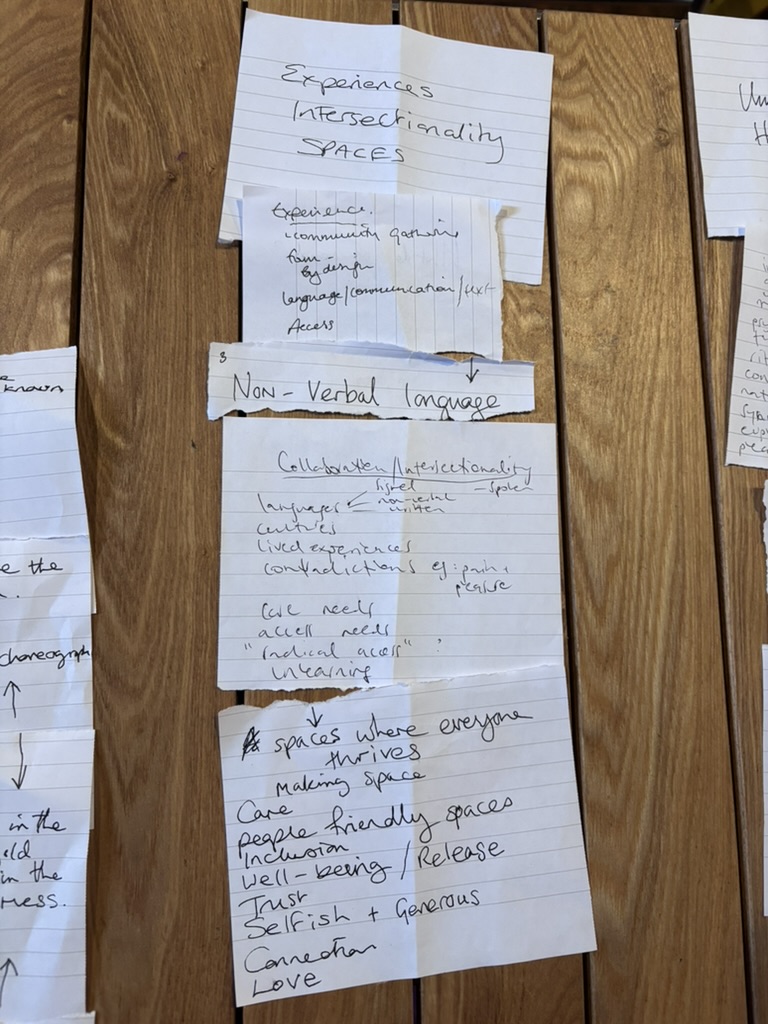 Experiences
Intersectionality
SPACES
Experience.
community gathering
form
by design
language/communication/text
Access
8
↓
Non-Verbal language
Collaboration/Intersectionality
languages signed - spoken
non-verbal
written
cultures
lived experiences
contradictions eg: pain +
pleasure
Care needs
access needs
"radical access" :
unlearning
↓
spaces where everyone
thrives
Making space
Care
people friendly spaces
Inclusion
Well-being / Release
Trust
Selfish + Generous
Connection
LOVE
known
e the
choreograph
↑
↓
in the
in the
ness.
↑